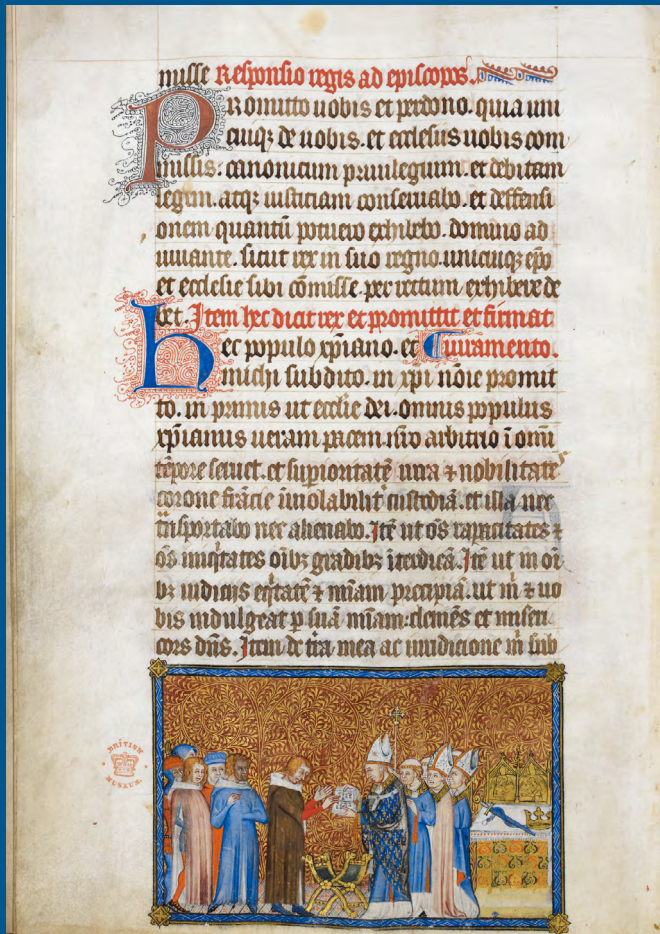 misse Responsio regis ad episcopos.
Promitto uobis et perdono. quia uni
cuiq; de uobis. et ecclesiis uobis com
missis. canonicum priuilegium. et debitam
legem. atq; iusticiam conseruabo. et deffensi
onem quantū potuero exhibebo. domino ad
iuuante. sicut rex in suo regno. unicuiq; epō
et ecclesie sibi cōmisse. per rectum exhibere de
bet. Item hec dicit rex et promittit et firmat
hec populo xp̄iano. et iuramento.
michi subdito. in xp̄i nōie promit
to. in primis ut ecclīe dei. omnis populus
xp̄ianus ueram pacem. nr̄o arbitrio ī omī
tēpore seruet. et supioritatē iura ⁊ nobilitate
corone francie īuiolabilit custodiā. et illa nec
tnsportabo nec alienabo. Itē ut ōs rapacitates ⁊
ōs iniqtates oībz gradibz īterdicā. Itē ut in oī
bz iudiciis eqtatē ⁊ mīam precipiā. ut m ⁊ uo
bis indulgeat p suā mīam. clemēs et miseri
cors dn̄s. Item de tra mea ac iuridicione m sub
BRITISH
MUSEUM